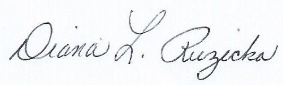 Diana L. Ruzicka